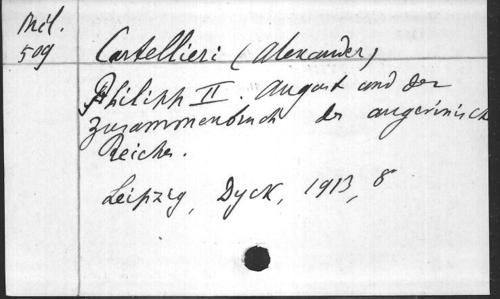 Mil.
509
Cartellieri (Alexander)
Philipp II. August und der
Zusammenbruch des angevinisch
Reiches.
Leipzig, Dyck, 1913, 8°